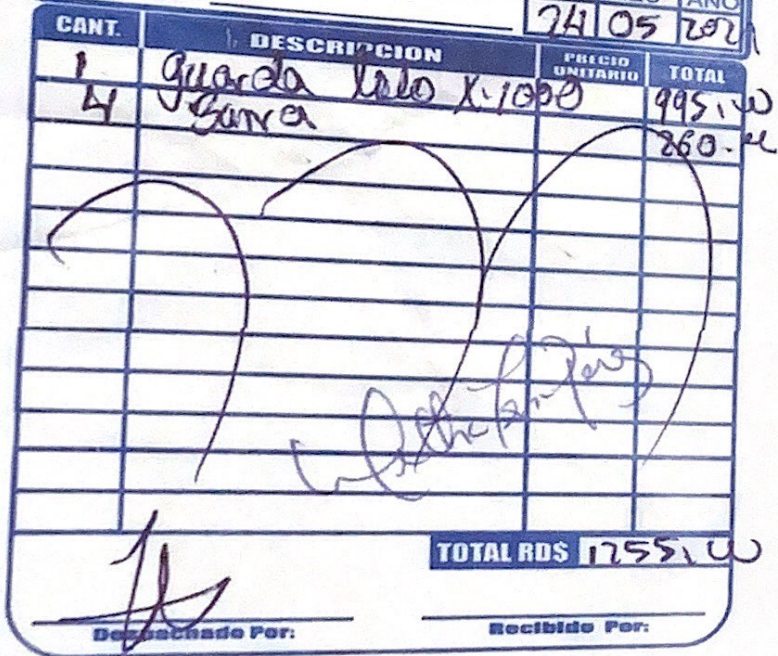 AÑO
24 05 2021
CANT. DESCRIPCION PRECIO UNITARIO TOTAL
1 guarda lodo X-1000 995.00
4 Barra 260.00
TOTAL RD$ 1255.00
Despachado Por: Recibido Por: